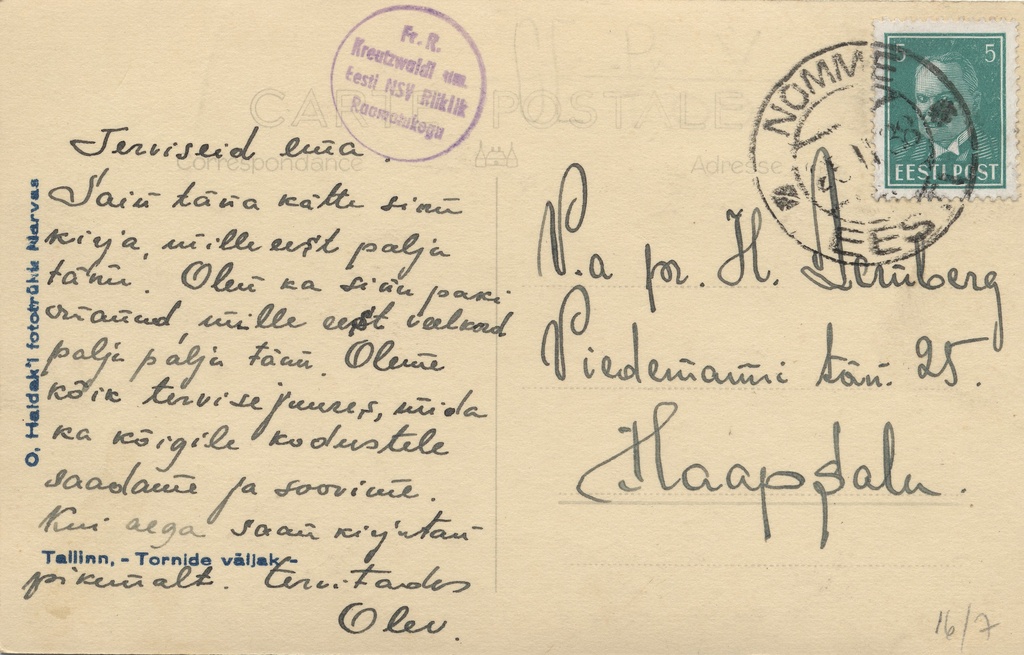 Fr. R.
Kreutzwaldi nim.
Eesti NSV Riiklik
Raamatukogu
CARTE POSTALE
Correspondance
Adresse
NÕMME
EESTI
5 5
EESTI POST
Terviseid ema.
Sain täna kätte sinu
kirja, mille eest palju
tänu. Olen ka sinu paki
saanud, mille eest veelkord
palju palju tänu. Oleme
kõik tervise juures, mida
ka kõigile kodustele
saadame ja soovime.
Kui aega saan kirjutan
pikemalt. Tervitades
Olev.
P.a pr. H. Lemberg
Viedemanni tän. 25.
Haapsalu.
O. Haidak'i fototrükk Narvas
Tallinn, - Tornide väljak -
16/7